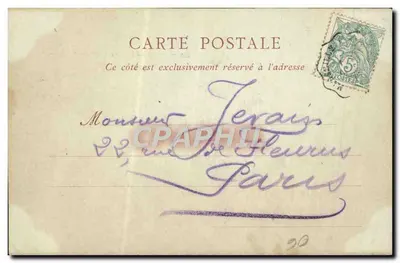 CARTE POSTALE
Ce côté est exclusivement réservé à l'adresse
5
Monsieur Jevais
CPAPHIL
22, rue de Fleurus
Paris
20